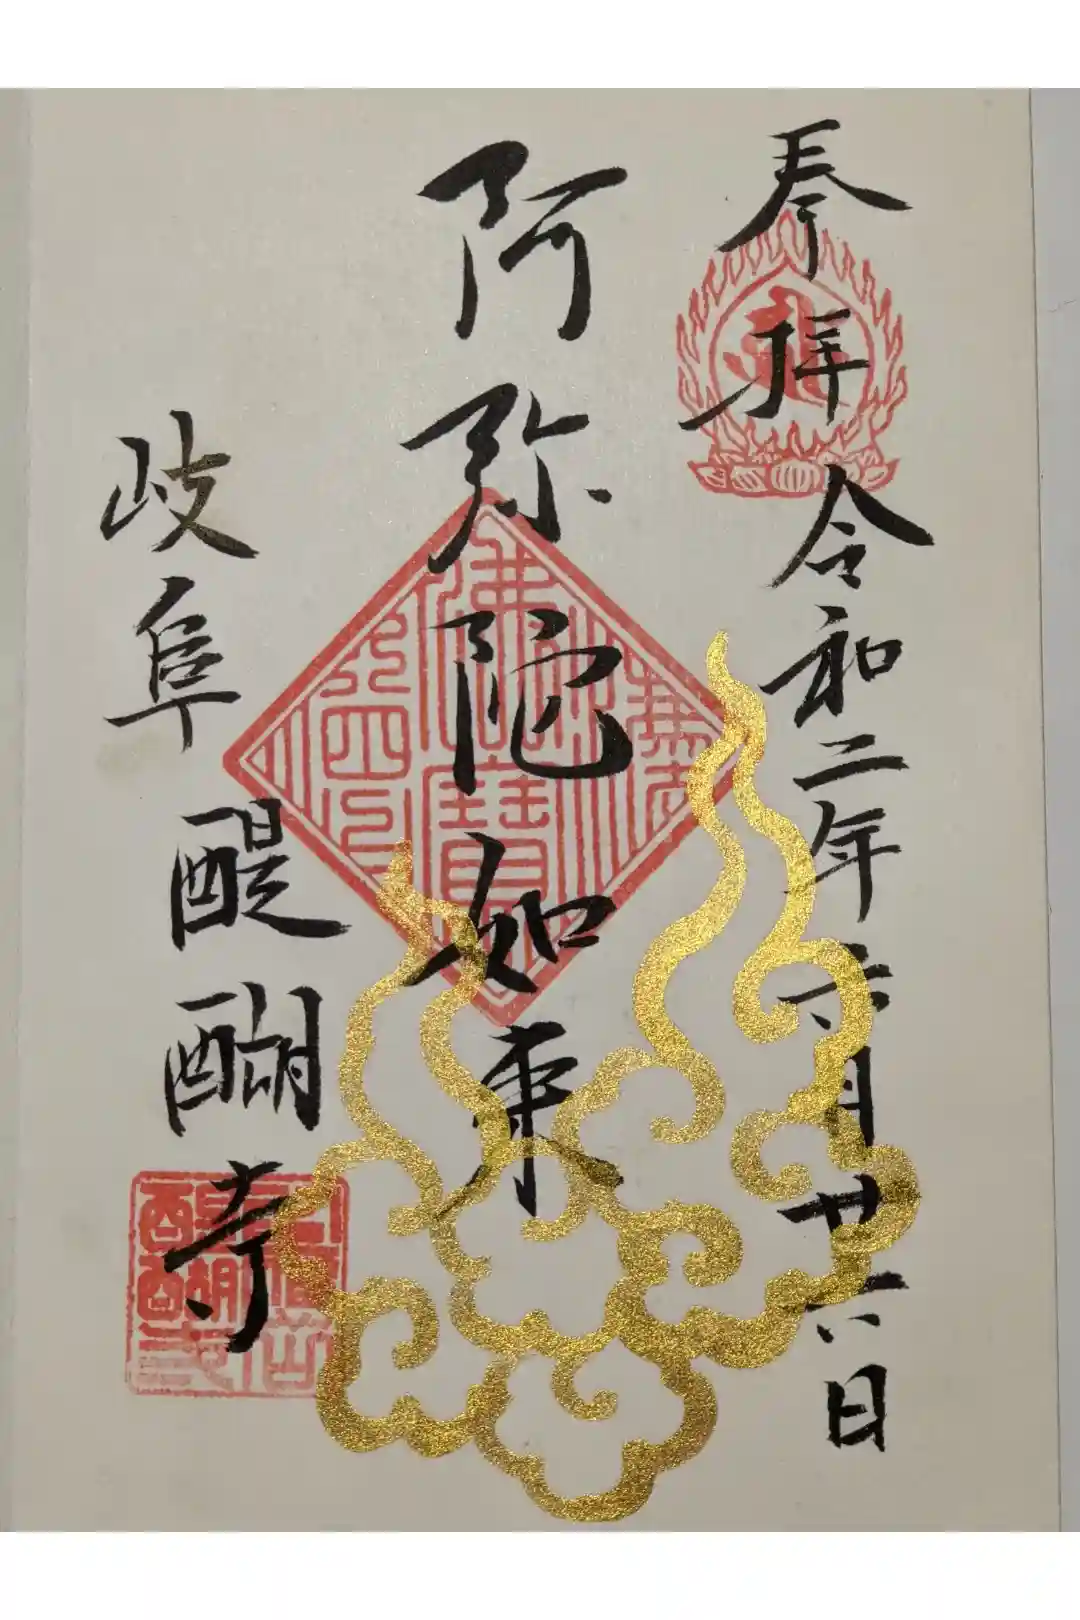 奉拝 令和二年六月廿六日
阿弥陀如来
岐阜 醍醐寺